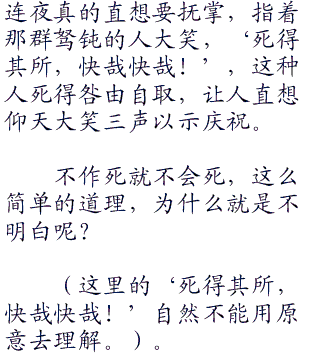 连夜真的直想要抚掌，指着
那群驽钝的人大笑，‘死得
其所，快哉快哉！’，这种
人死得咎由自取，让人直想
仰天大笑三声以示庆祝。
不作死就不会死，这么
简单的道理，为什么就是不
明白呢？
（这里的‘死得其所，
快哉快哉！’自然不能用原
意去理解。）。